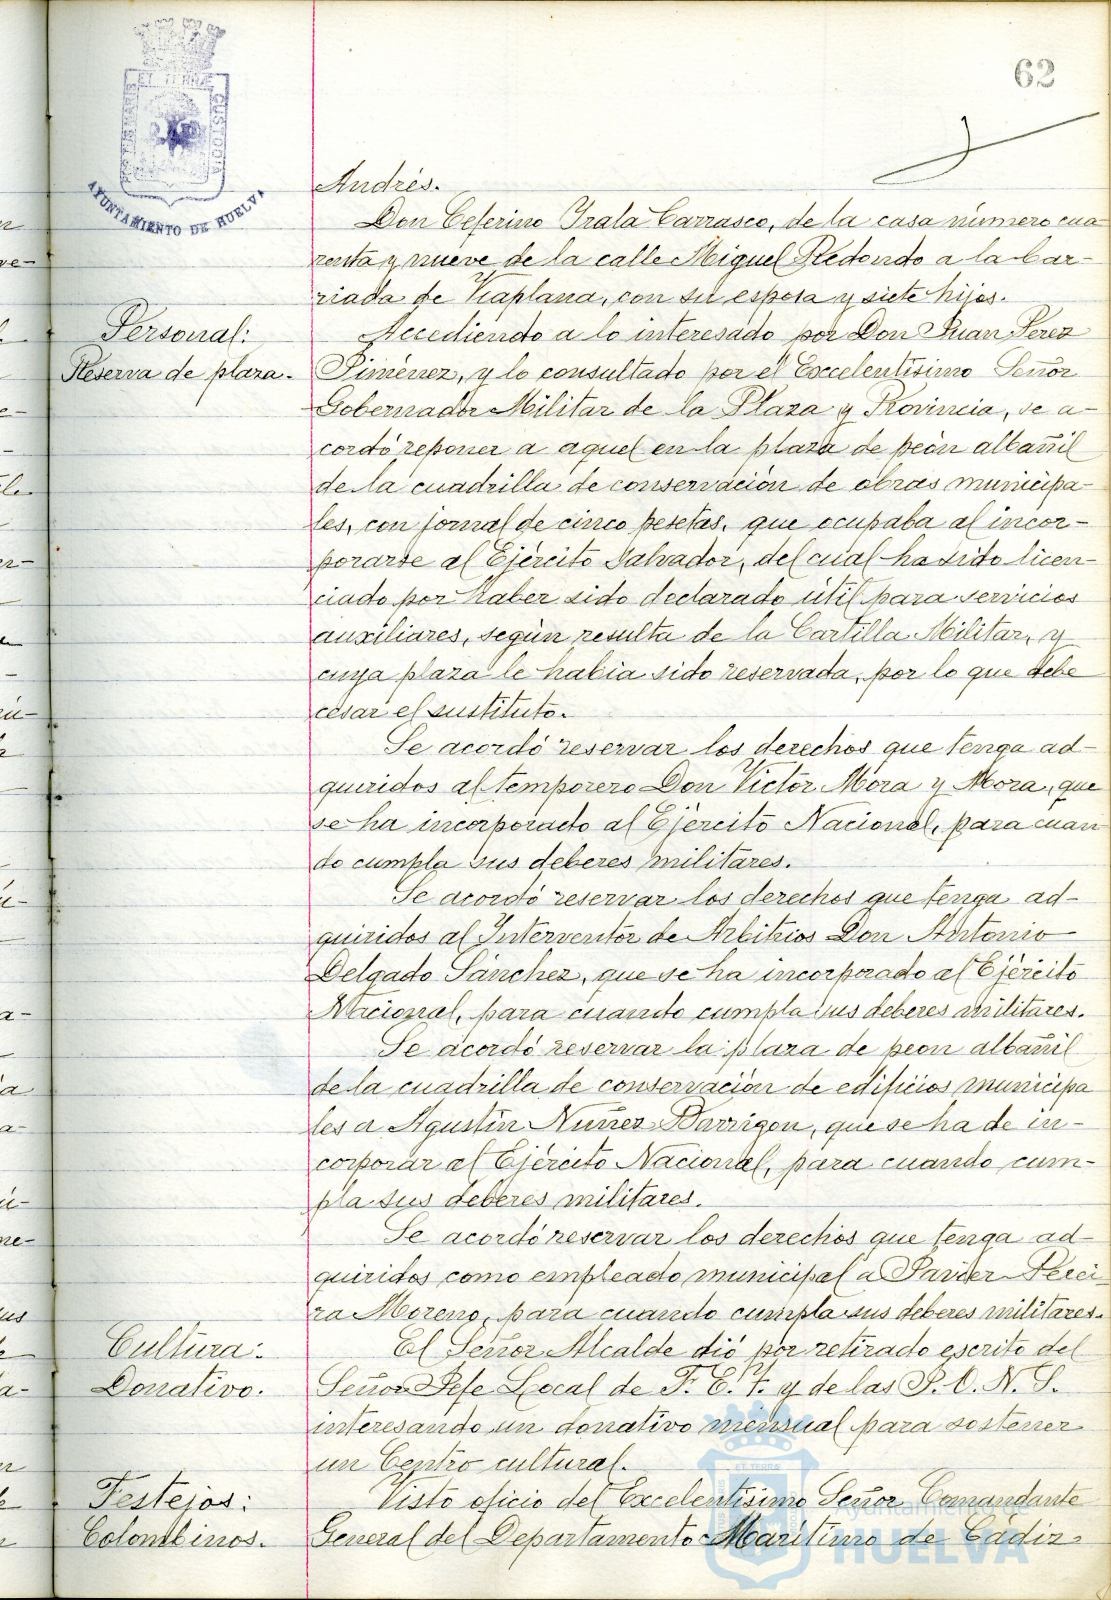 62
ET TERRÆ
CUSTODIA
AYUNTAMIENTO DE HUELVA
Andrés.
Don Ceferino Irala Carrasco, de la casa número cua-
renta y nueve de la calle Miguel Redondo a la bar-
riada de Viaplana, con su esposa y siete hijos.
Personal:
Reserva de plaza.
Accediendo a lo interesado por Don Juan Perez
Jiménez, y lo consultado por el Excelentísimo Señor
Gobernador Militar de la Plaza y Provincia, se a-
cordó reponer a aquel en la plaza de peón albañil
de la cuadrilla de conservación de obras municipa-
les, con jornal de cinco pesetas, que ocupaba al incor-
porarse al Ejército Salvador, del cual ha sido licen-
ciado por haber sido declarado útil para servicios
auxiliares, según resulta de la Cartilla Militar, y
cuya plaza le había sido reservada, por lo que debe
cesar el sustituto.
Se acordó reservar los derechos que tenga ad-
queridos al temporero Don Victor Mora y Mora, que
se ha incorporado al Ejército Nacional, para cuan
do cumpla sus deberes militares.
Se acordó reservar los derechos que tenga ad-
quiridos al Interventor de Arbitrios Don Antonio
Delgado Sánchez, que se ha incorporado al Ejército
Nacional, para cuando cumpla sus deberes militares.
Se acordó reservar la plaza de peon albañil
de la cuadrilla de conservación de edificios municipa
les a Agustín Nuñez Barrigon, que se ha de in-
corporar al Ejército Nacional, para cuando cum-
pla sus deberes militares.
Se acordó reservar los derechos que tenga ad-
quiridos como empleado municipal a Javier Perei-
ra Moreno, para cuando cumpla sus deberes militares.
Cultura:
Donativo.
El Señor Alcalde dió por retirado escrito del
Señor Jefe Local de F. E. T. y de las J. O. N. S.
interesando un donativo mensual para sostener
un Centro cultural.
Festejos:
Colombinos.
Visto oficio del Excelentísimo Señor Comandante
General del Departamento Marítimo de Cádiz
Ayuntamiento de
HUELVA